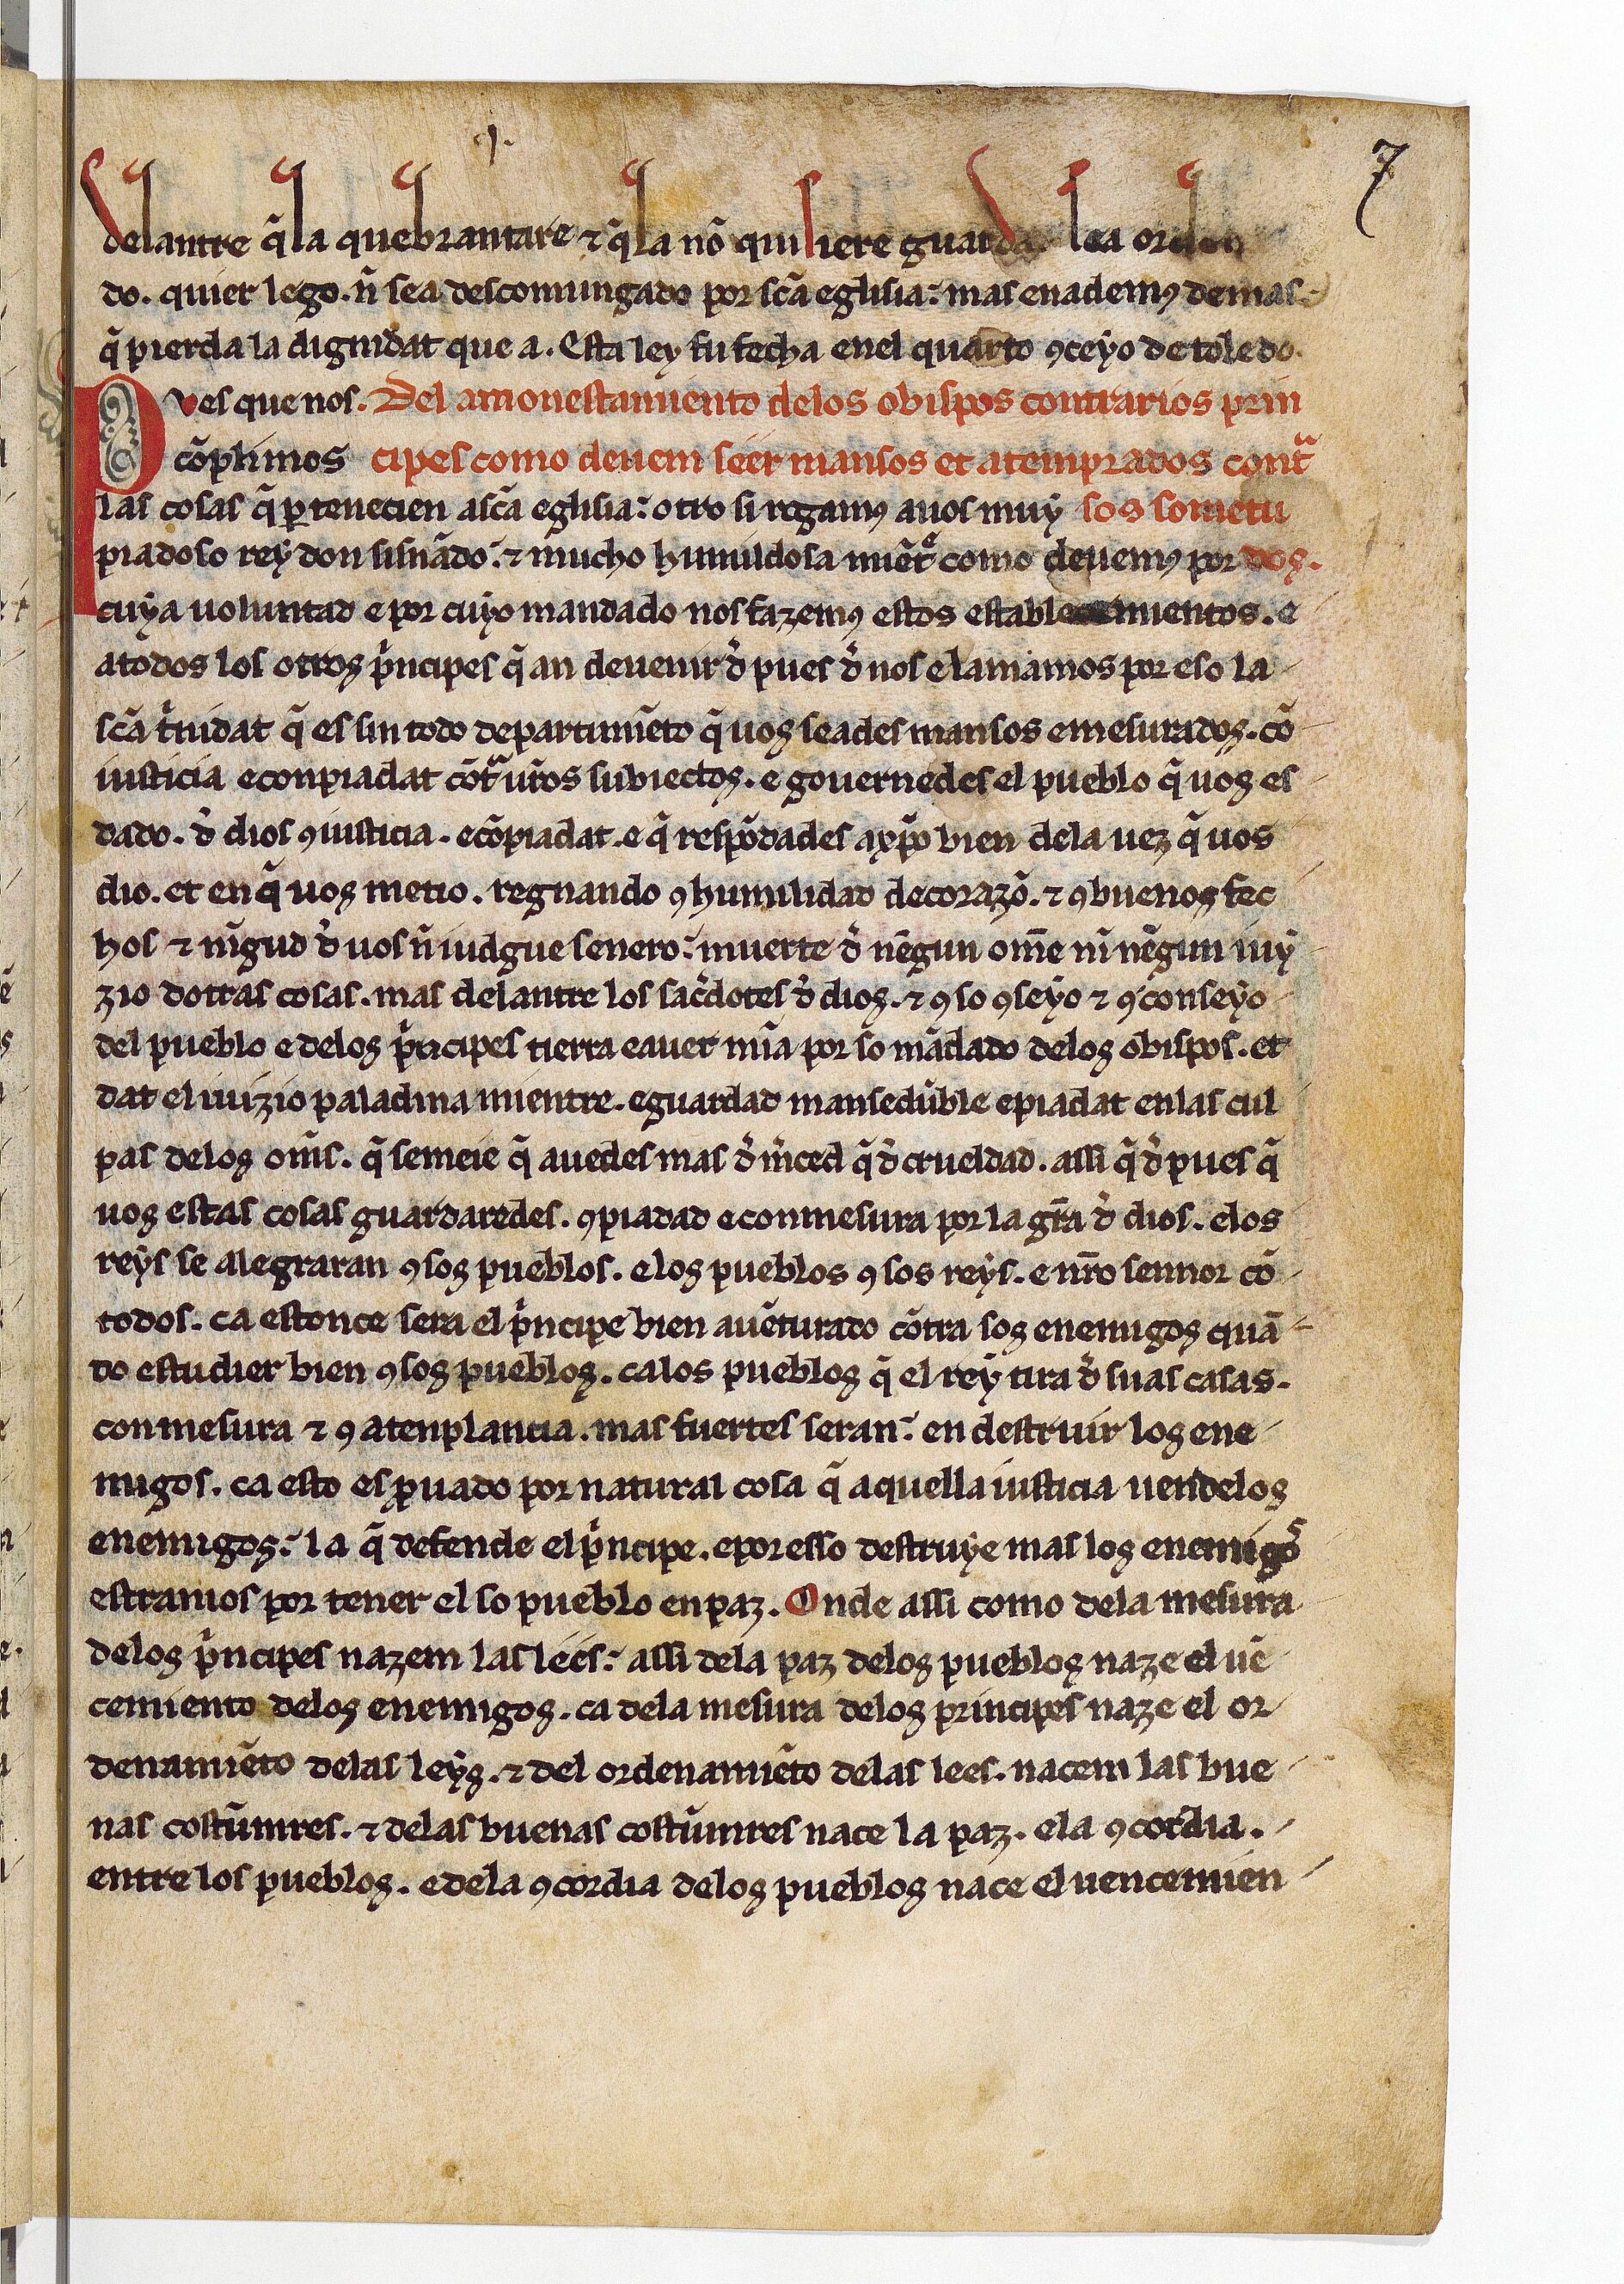 .j.
7
delantre q̃ la quebrantare ⁊ q̃ la nõ quisiere guarda sea orden
do. quier lego. ñ sea descomungado por sc̃a eglisia: mas enademꝰ demas
q̃ pierda la dignidat que a. Esta ley fu fecha enel quarto ꝯceyo de toledo.
Pves que nos. Del amonestamiento delos obispos contrarios prin
cõplimos cipes como deuem séér mansos et atemprados cont
las cosas q̃ ꝑtenecien asc̃a eglisia: otro si regamꝰ auos muy sos sometu
piadoso rey don sisnãdo: ⁊ mucho humildosa miẽt como deuemꝰ por dos.
cuya uoluntad e por cuyo mandado nos fazemꝰ estos establecemientos. e
atodos los otros p̃ncipes q̃ an deuenir d̃ pues d̃ nos e lamamos por eso la
sc̃a t̃nidat q̃ es sin todo departimiẽto q̃ uos seades mansos emesurados. cõ
iusticia econpiadat cõt̃ ur̃os subiectos. e gouernedes el pueblo q̃ uos es
dado. d̃ dios ꝯiusticia. ecõpiadat. e q̃ respõdades axp̃o bien dela uez q̃ uos
dio. et en q̃ uos metio. regnando ꝯ humilidad decorazõ. ⁊ ꝯ buenos fec
hos ⁊ nĩgud d̃ uos ñ iudgue senero: muerte d̃ nẽgun om̃e nĩ nẽgun iuy
zio dotras cosas. mas delantre los sac̃dotes d̃ dios. ⁊ ꝯ so ꝯseyo ⁊ ꝯ conseyo
del pueblo e delos p̃ncipes tierra eauer mĩa por so mãdado delos obispos. et
dat el iuizio paladina mientre. eguardad mansedũble epiadat enlas cul
pas delos om̃s. q̃ semeie q̃ auedes mas d̃ m̃ced q̃ d̃ crueldad. assi q̃ d̃ pues q̃
uos estas cosas guardaredes. ꝯpiadad econmesura por la gr̃a d̃ dios. elos
reys se alegraran ꝯ sos pueblos. elos pueblos ꝯ sos reys. e nr̃o sennor cõ
todos. ca estonce sera el p̃ncipe bien auẽturado cõtra sos enemigos quã
do estudier bien ꝯ sos pueblos. calos pueblos q̃ el rey tira d̃ suas casas.
conmesura ⁊ ꝯ atenplancia. mas fuertes seran: en destruir los ene
migos. ca esto es ꝓuado por natural cosa q̃ aquella iusticia uendelos
enemigos: la q̃ defende el p̃ncipe. eporesso destruye mas los enemigos
estranios por tener el so pueblo enpaz. Onde assi como dela mesura
delos p̃ncipes nazem las léés: assi dela paz delos pueblos naze el uẽ
cemiento delos enemigos. ca dela mesura delos principes naze el or
denamiẽto delas leys. ⁊ del ordenamiẽto delas lees. nacem las bue
nas costũmres. ⁊ delas buenas costũmres nace la paz. ela ꝯcordia.
entre los pueblos. edela ꝯcordia delos pueblos nace el uencemien